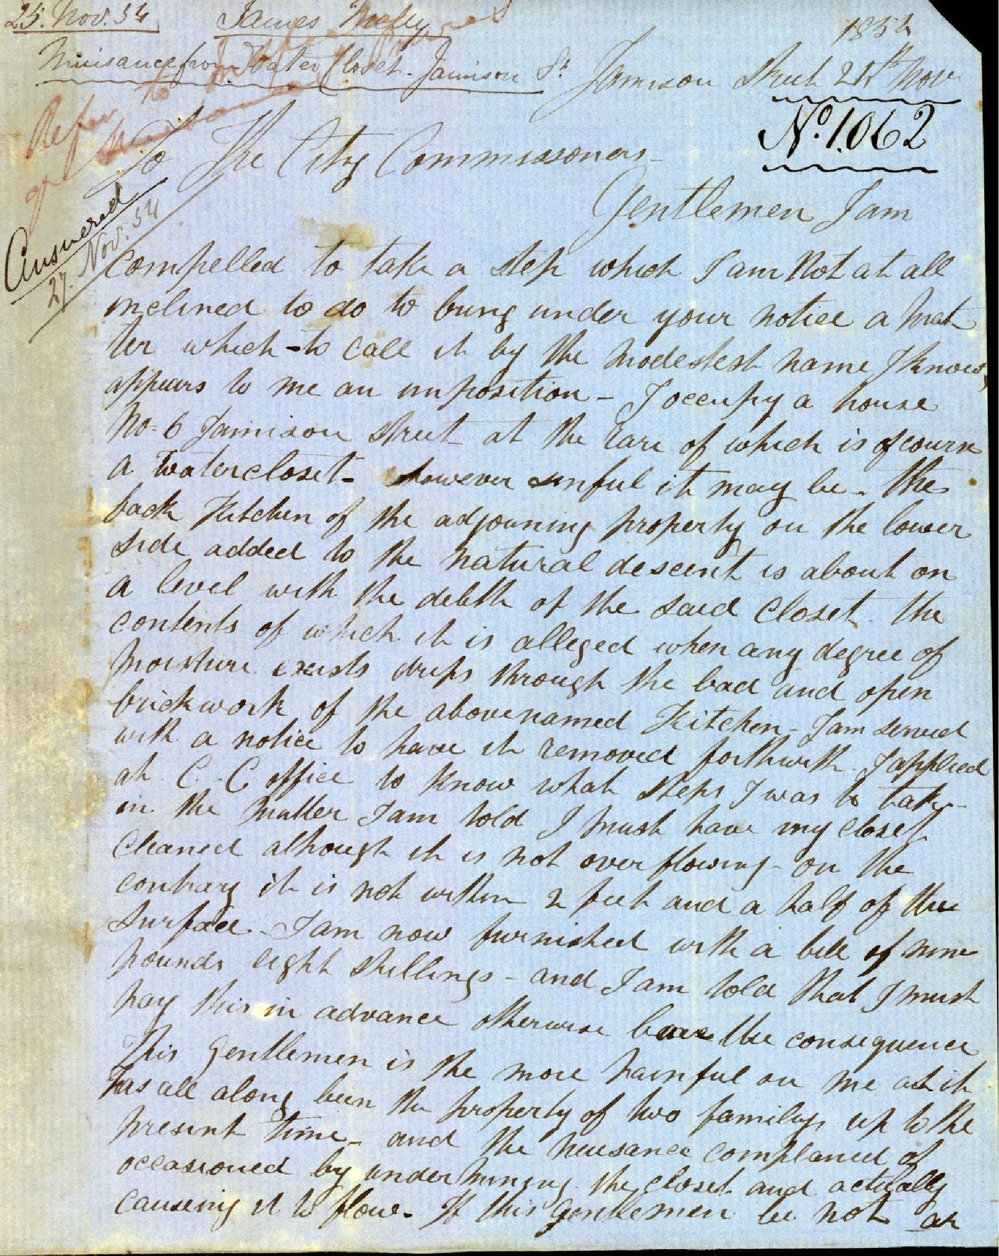 25. Nov. 54 James
Nuisance from Water Closet Jamison St
1854
Jamison Street 25th Novr
No. 1.062
Refer to
of
To The City Commissoners
Answered
27. Nov. 54
Gentlemen I am
compelled to take a step which I am Not at all
inclined to do to bring under your notice a Mat
ter which to call it by the modestest name I know,
appears to me an imposition - I occupy a house
No. 6 Jamison Street at the rare of which is of course
a watercloset - however sinful it may be - the
back Kitchen of the adjoining property on the lower
side added to the natural descent is about on
a level with the debth of the said closet the
contents of which it is alleged when any degree of
moisture exists drips through the bad and open
brickwork of the abovenamed Kitchen - I am served
with a notice to have it removed forthwith - I applied
at C. C office to know what steps I was to take -
in the matter I am told I must have my closet
cleaned although it is not overflowing - on the
contrary it is not within 2 feet and a half of the
surface - I am now furnished with a bill of nine
pounds eight shillings - and I am told that I must
pay this in advance otherwise bear the consequence
This Gentlemen is the more painful on me as it
has all along been the property of two familys up to the
present time - and the neusance complained of
occasioned by undermining the closet and actually
causing it to flow. If this Gentlemen be not an